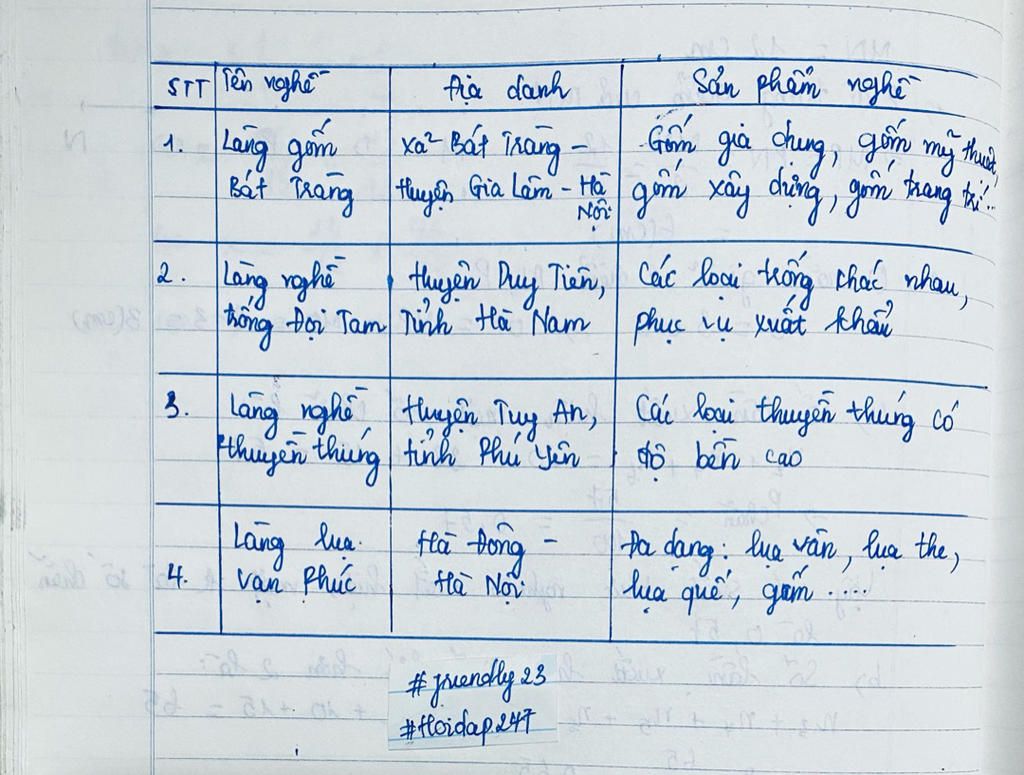 STT Tên nghề Địa danh Sản phẩm nghề
1. Làng gốm Bát Tràng
Xã Bát Tràng - Huyện Gia Lâm - Hà Nội
Gốm gia dụng, gốm mỹ thuật,
gốm xây dựng, gốm trang trí...
2. Làng nghề
trống Đọi Tam
Huyện Duy Tiên,
Tỉnh Hà Nam
Các loại trống khác nhau,
phục vụ xuất khẩu
3. Làng nghề
thuyền thúng
Huyện Tuy An,
tỉnh Phú Yên
Các loại thuyền thúng có
độ bền cao
4. Làng lụa
vạn Phúc
Hà Đông -
Hà Nội
Đa dạng: lụa vân, lụa the,
lụa quế, gấm ....
#friendly23
#Hoidap247